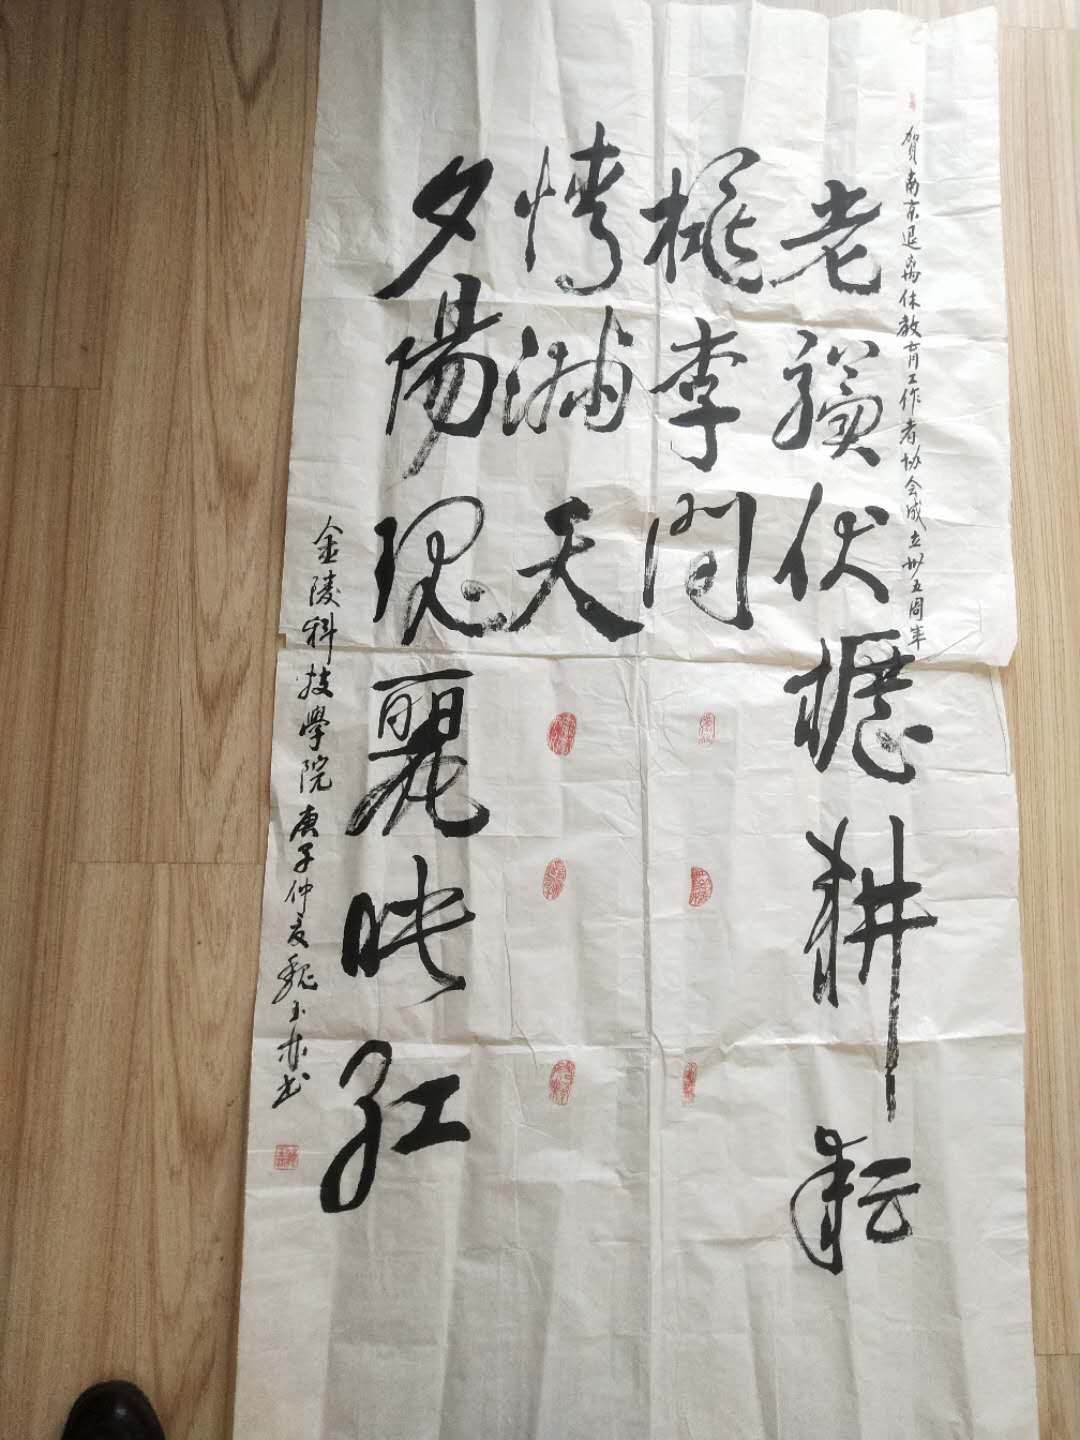 贺南京退离休教育工作者协会成立卅五周年
老骥伏櫪耕耘
桃李间
情满天
夕陽瑰麗映红
金陵科技學院庚子仲夏魏玉